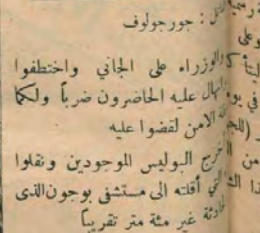 : جورجولوف
والوزراء على الجاني واختطفوا
وانهال عليه الحاضرون ضرباً ولكما
الامن لقضوا عليه
البوليس الموجودين ونقلوا
أقلته الى مستشفى بوجون الذى
غير مئة متر تقريباً